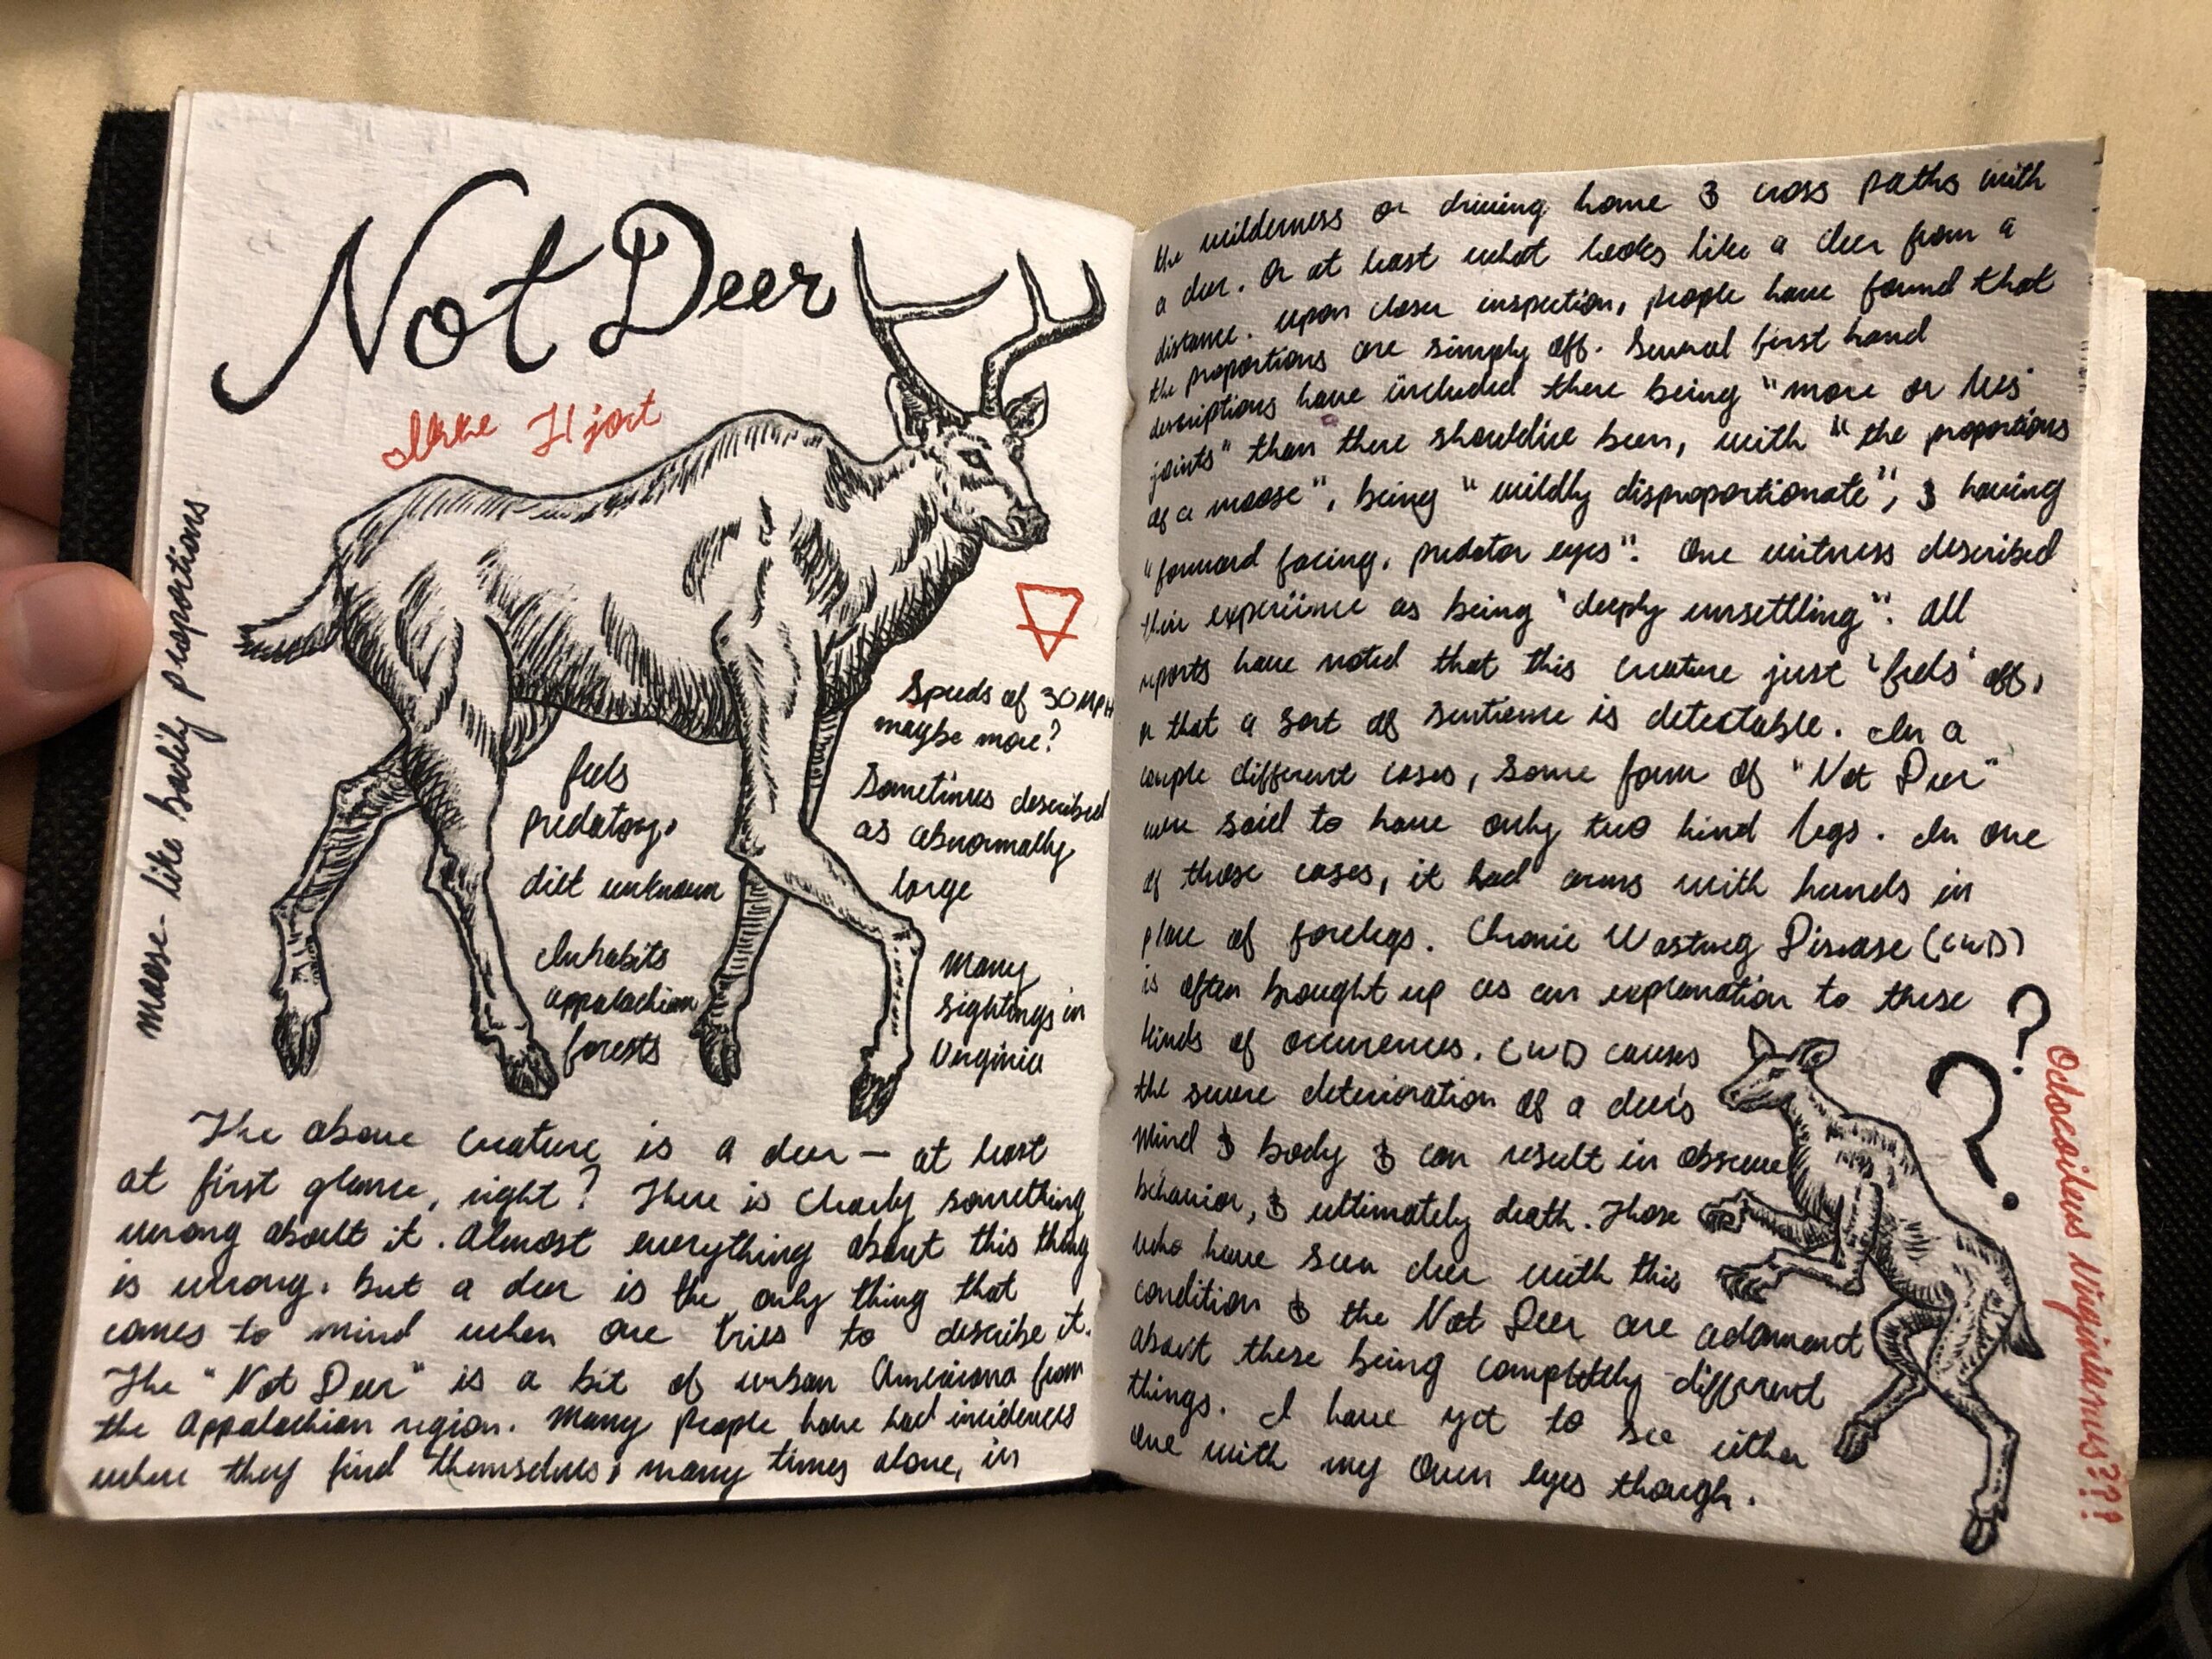 Not Deer
Ikke Hjort
moose-like bodily proportions
Speeds of 30 MPH
maybe more?
Sometimes described
as abnormally
large
feels
predatory,
diet unknown
Inhabits
appalachian
forests
Many
sightings in
Virginia
The above creature is a deer – at least
at first glance, right? There is clearly something
wrong about it. Almost everything about this thing
is wrong. but a deer is the only thing that
comes to mind when one tries to describe it.
The "Not Deer" is a bit of urban Americana from
the Appalachian region. Many people have had incidences
where they find themselves, many times alone, in
the wilderness or driving home & cross paths with
a deer. Or at least what looks like a deer from a
distance. upon closer inspection, people have found that
the proportions are simply off. Several first hand
descriptions have included there being "more or less
joints" than there should've been, with "the proportions
of a moose", being "wildly disproportionate", & having
"forward facing, predator eyes". One witness described
their experience as being "deeply unsettling". All
reports have noted that this creature just 'feels' off,
or that a sort of sentience is detectable. In a
couple different cases, some form of "Not Deer"
were said to have only two hind legs. In one
of those cases, it had arms with hands in
place of forelegs. Chronic Wasting Disease (CWD)
is often brought up as an explanation to these
kinds of occurences. CWD causes
the severe deterioration of a deer's
mind & body & can result in obscure
behavior, & ultimately death. Those
who have seen deer with this
condition & the Not Deer are adamant
about these being completely different
things. I have yet to see either
one with my own eyes though.
? ?
Odocoileus Virginianus???